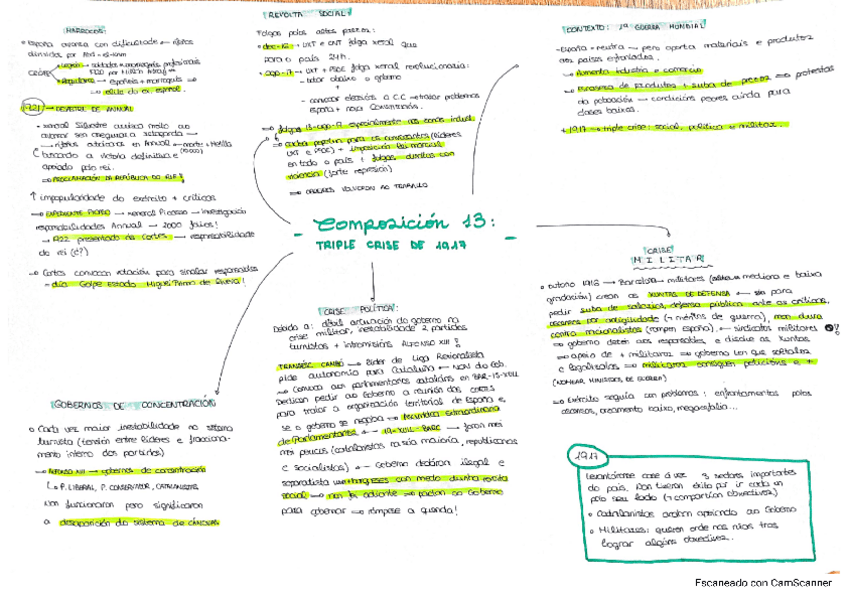 MARROCOS:
España avanza con dificultade ← rifeños
dirixidos por Abd-el-Krim
Legión → soldados
Regulares → españois + marroquís →
→ elite do ex. español.
1921 → DESASTRE DE ANNUAL
xeneral Silvestre avanza moito ao
 sen asegurar a retagarda →
→ rifeños atácanos en Annual → morte + Melilla
buscando a vitoria definitiva e
apoiado polo rei.
⇒ PROCLAMACIÓN DA REPÚBLICA DO RIF!
↑ impopularidade do exército + críticas
→ EXPEDIENTE PICASSO → xeneral Picasso → investigación
responsabilidades Annual → 2000 folios!
→ 1922 presentado ás Cortes → responsabilidade
do rei (é?)
→ Cortes convocan votación para sinalar responsables
- día Golpe Estado Miguel Primo de Rivera!
REVOLTA SOCIAL
Folgas polos altos prezos:
dec-16 → UXT e CNT folga xeral que
para o país 24h.
ago-17 → UXT + PSOE folga xeral revolucionaria:
- tratar abaixo o goberno
+
- convocar eleccións a C.C → tratar problemas
España + nova Constitución.
⇒ folgas 13-ago-17, especialmente nas zonas indust.
→ cadea perpetua para os convocantes (líderes
UXT e PSOE) + imposición lei marcial
en todo o país + folgas disoltas con
violencia (forte represión)
⇒ OBREIROS VOLVERON AO TRABALLO
CONTEXTO: 1ª GUERRA MUNDIAL
-España → neutra → pero aporta materiais e produtos
aos países enfrontados.
⇒ Aumento industria e comercio
⇒ Escaseza de produtos + suba de prezos ⇒ protestas
da poboación → condicións peores aínda para
clases baixas.
+ 1917 → triple crise: social, política e militar.
- Composición 13: -
TRIPLE CRISE DE 1917
CRISE MILITAR
outono 1916 → Barcelona → militares ( mediana e baixa
gradación) crean as XUNTAS DE DEFENSA ← son para
pedir suba de salarios, defensa pública ante as críticas,
ascensos por antigüidade (¬ méritos de guerra), man dura
contra nacionalistas (rompen España). ← sindicatos militares !
⇒ goberno detén aos responsables, e disolve as Xuntas
⇒ apoio de + militares ⇒ goberno ten que soltalos
e legalizalos ⇒ militares conseguen peticións e +
(NOMEAR MINISTROS DE GUERRA)
⇒ Exército seguía con problemas: enfrontamentos polos
ascensos, armamento baixo, megalofolia...
CRISE POLÍTICA:
Debido a: débil actuación do goberno na
crise militar, inestabilidade 2 partidos
turnistas + intromisións ALFONSO XIII!
TRANSISC. CAMBÓ → líder de Liga Rexionalista
pide autonomía para Cataluña ← NON do Gob.
⇒ Convoca aos parlamentarios cataláns en BAR-15-XULL
Deciden pedir ao Goberno a reunión das Cortes
para tratar a organización territorial de España e,
se o goberno se negaba → Asemblea extraordinaria
de Parlamentarios ← 19-XULL-BARC → foron moi
moi poucos (catalanistas na súa maioría, republicanos
e socialistas) ← Goberno declárano ilegal e
separatista ⇒ burgueses con medo dunha revolta
social → non foi adiante ⇒ pactan co Goberno
para gobernar ⇒ rómpese a quenda!
GOBERNOS DE CONCENTRACIÓN
Cada vez maior inestabilidade no sistema
turnista (tensión entre líderes e fracciona-
mento interno dos partidos)
→ Alfonso XIII → gobernos de concentración
↳ P. LIBERAL, P. CONSERVADOR, CATALANISTAS
Non funcionaron pero significaron
a desaparición do sistema de CÁNOVAS
1917
Levantáronse case á vez 3 sectores importantes
do país. Non tiveron éxito por ir cada un
polo seu lado (¬ compartían obxectivos)
Catalanistas acaban apoiando ao Goberno
Militares: queren orde nas rúas tras
lograr algúns obxectivos.
Escaneado con CamScanner